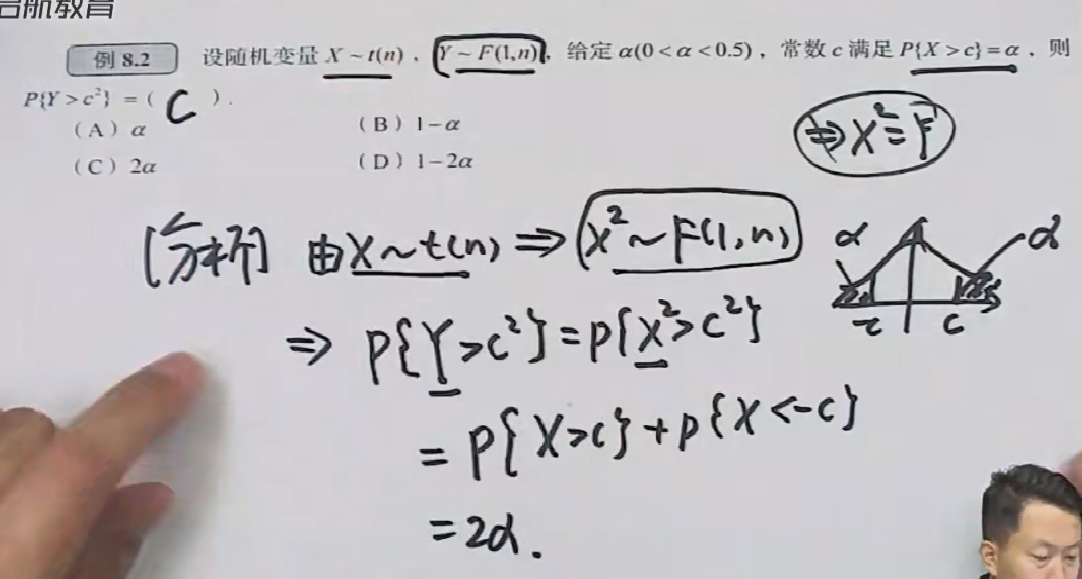 启航教育
例 8.2 设随机变量 X ~ t(n)，Y ~ F(1,n)，给定 α(0 < α < 0.5)，常数 c 满足 P{X > c} = α，则
P{Y > c²} = ( C ).
(A) α (B) 1-α
(C) 2α (D) 1-2α
⇒ X² = F
[分析] 由 X~t(n) ⇒ X² ~ F(1,n)
α α
-c c
⇒ P{Y>c²} = P{X²>c²}
= P{X>c} + P{X<-c}
= 2α.